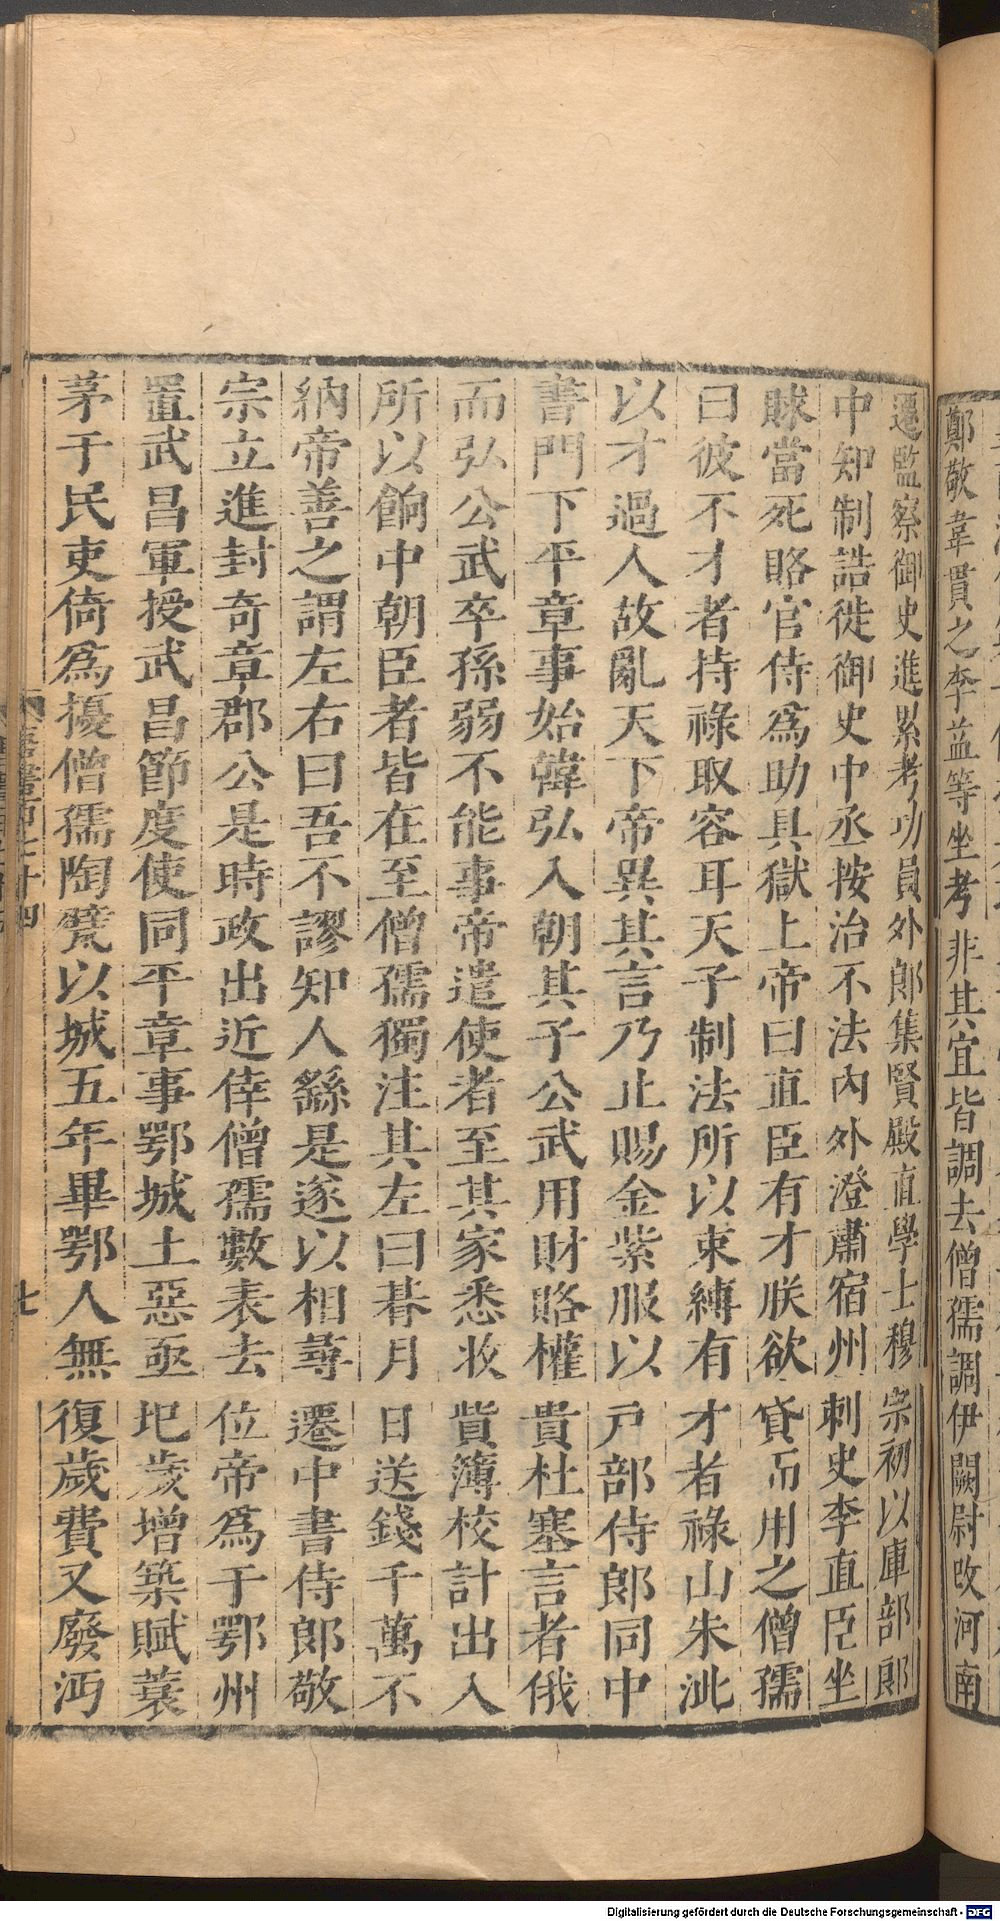 鄭敬韋貫之李益等坐考非其宜皆調去僧孺調伊闕尉改河南
遷監察御史進累考功員外郎集賢殿直學士穆宗初以庫部郎
中知制誥徙御史中丞按治不法內外澄肅宿州刺史李直臣坐
賕當死賂宦侍爲助具獄上帝曰直臣有才朕欲貸而用之僧孺
曰彼不才者持祿取容耳天子制法所以束縛有才者祿山朱泚
以才過人故亂天下帝異其言乃止賜金紫服以戶部侍郎同中
書門下平章事始韓弘入朝其子公武用財賂權貴杜塞言者俄
而弘公武卒孫弱不能事帝遣使者至其家悉收貲簿校計出入
所以餉中朝臣者皆在至僧孺獨注其左曰朞月日送錢千萬不
納帝善之謂左右曰吾不謬知人繇是遂以相尋遷中書侍郎敬
宗立進封奇章郡公是時政出近倖僧孺數表去位帝爲于鄂州
置武昌軍授武昌節度使同平章事鄂城土惡亟圯歲增築賦蓑
茅于民吏倚爲擾僧孺陶甓以城五年畢鄂人無復歲費又廢沔
七
Digitalisierung gefördert durch die Deutsche Forschungsgemeinschaft - DFG